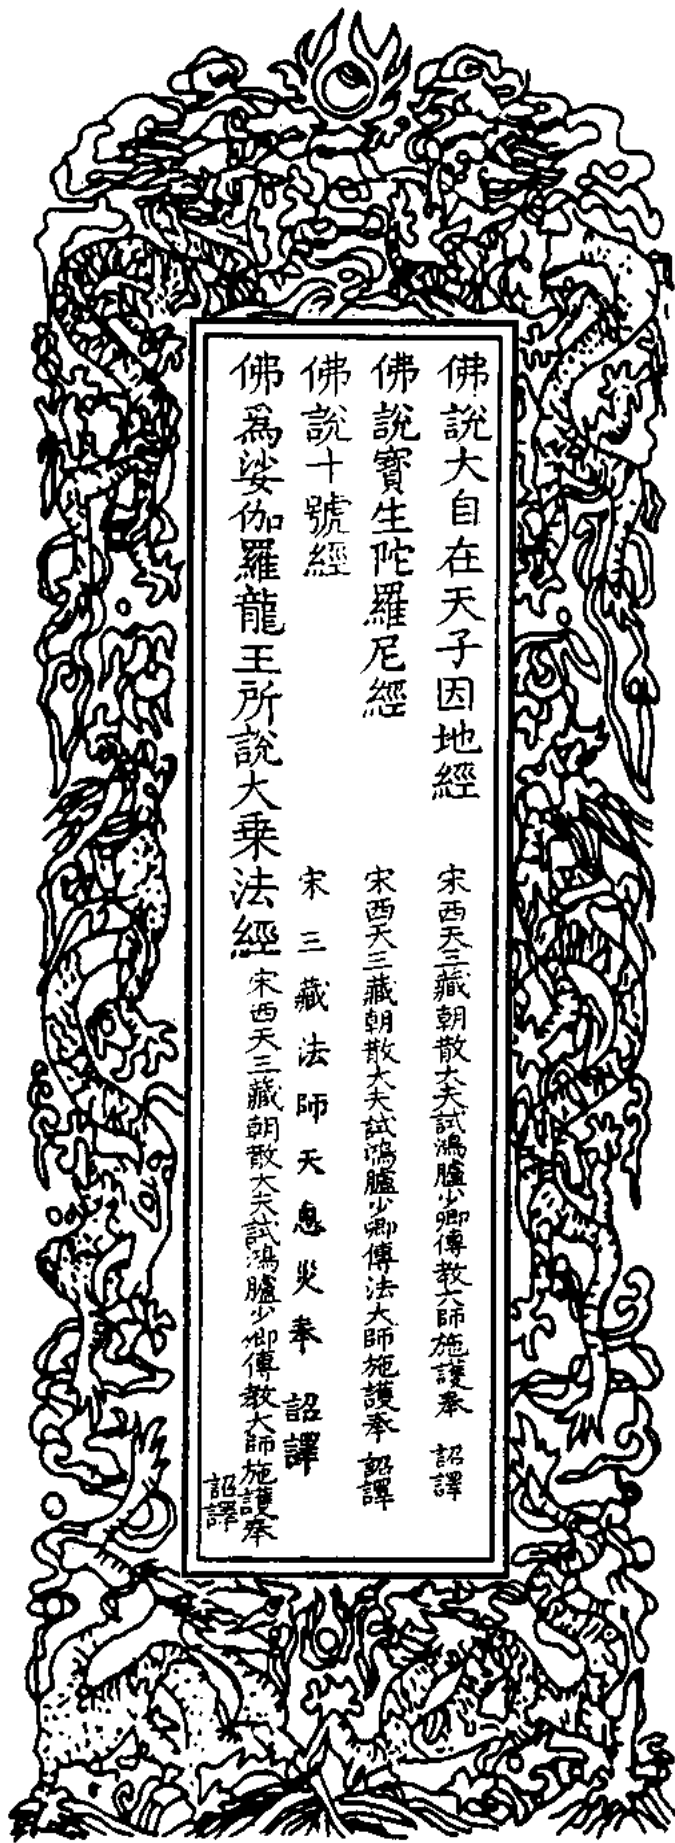 佛說大自在天子因地經
宋西天三藏朝散大夫試鴻臚少卿傳教大師施護奉 詔譯
佛說寶生陀羅尼經
宋西天三藏朝散大夫試鴻臚少卿傳法大師施護奉 詔譯
佛說十號經
宋三藏法師天息災奉 詔譯
佛為娑伽羅龍王所說大乘法經
宋西天三藏朝散大夫試鴻臚少卿傳教大師施護奉
詔譯